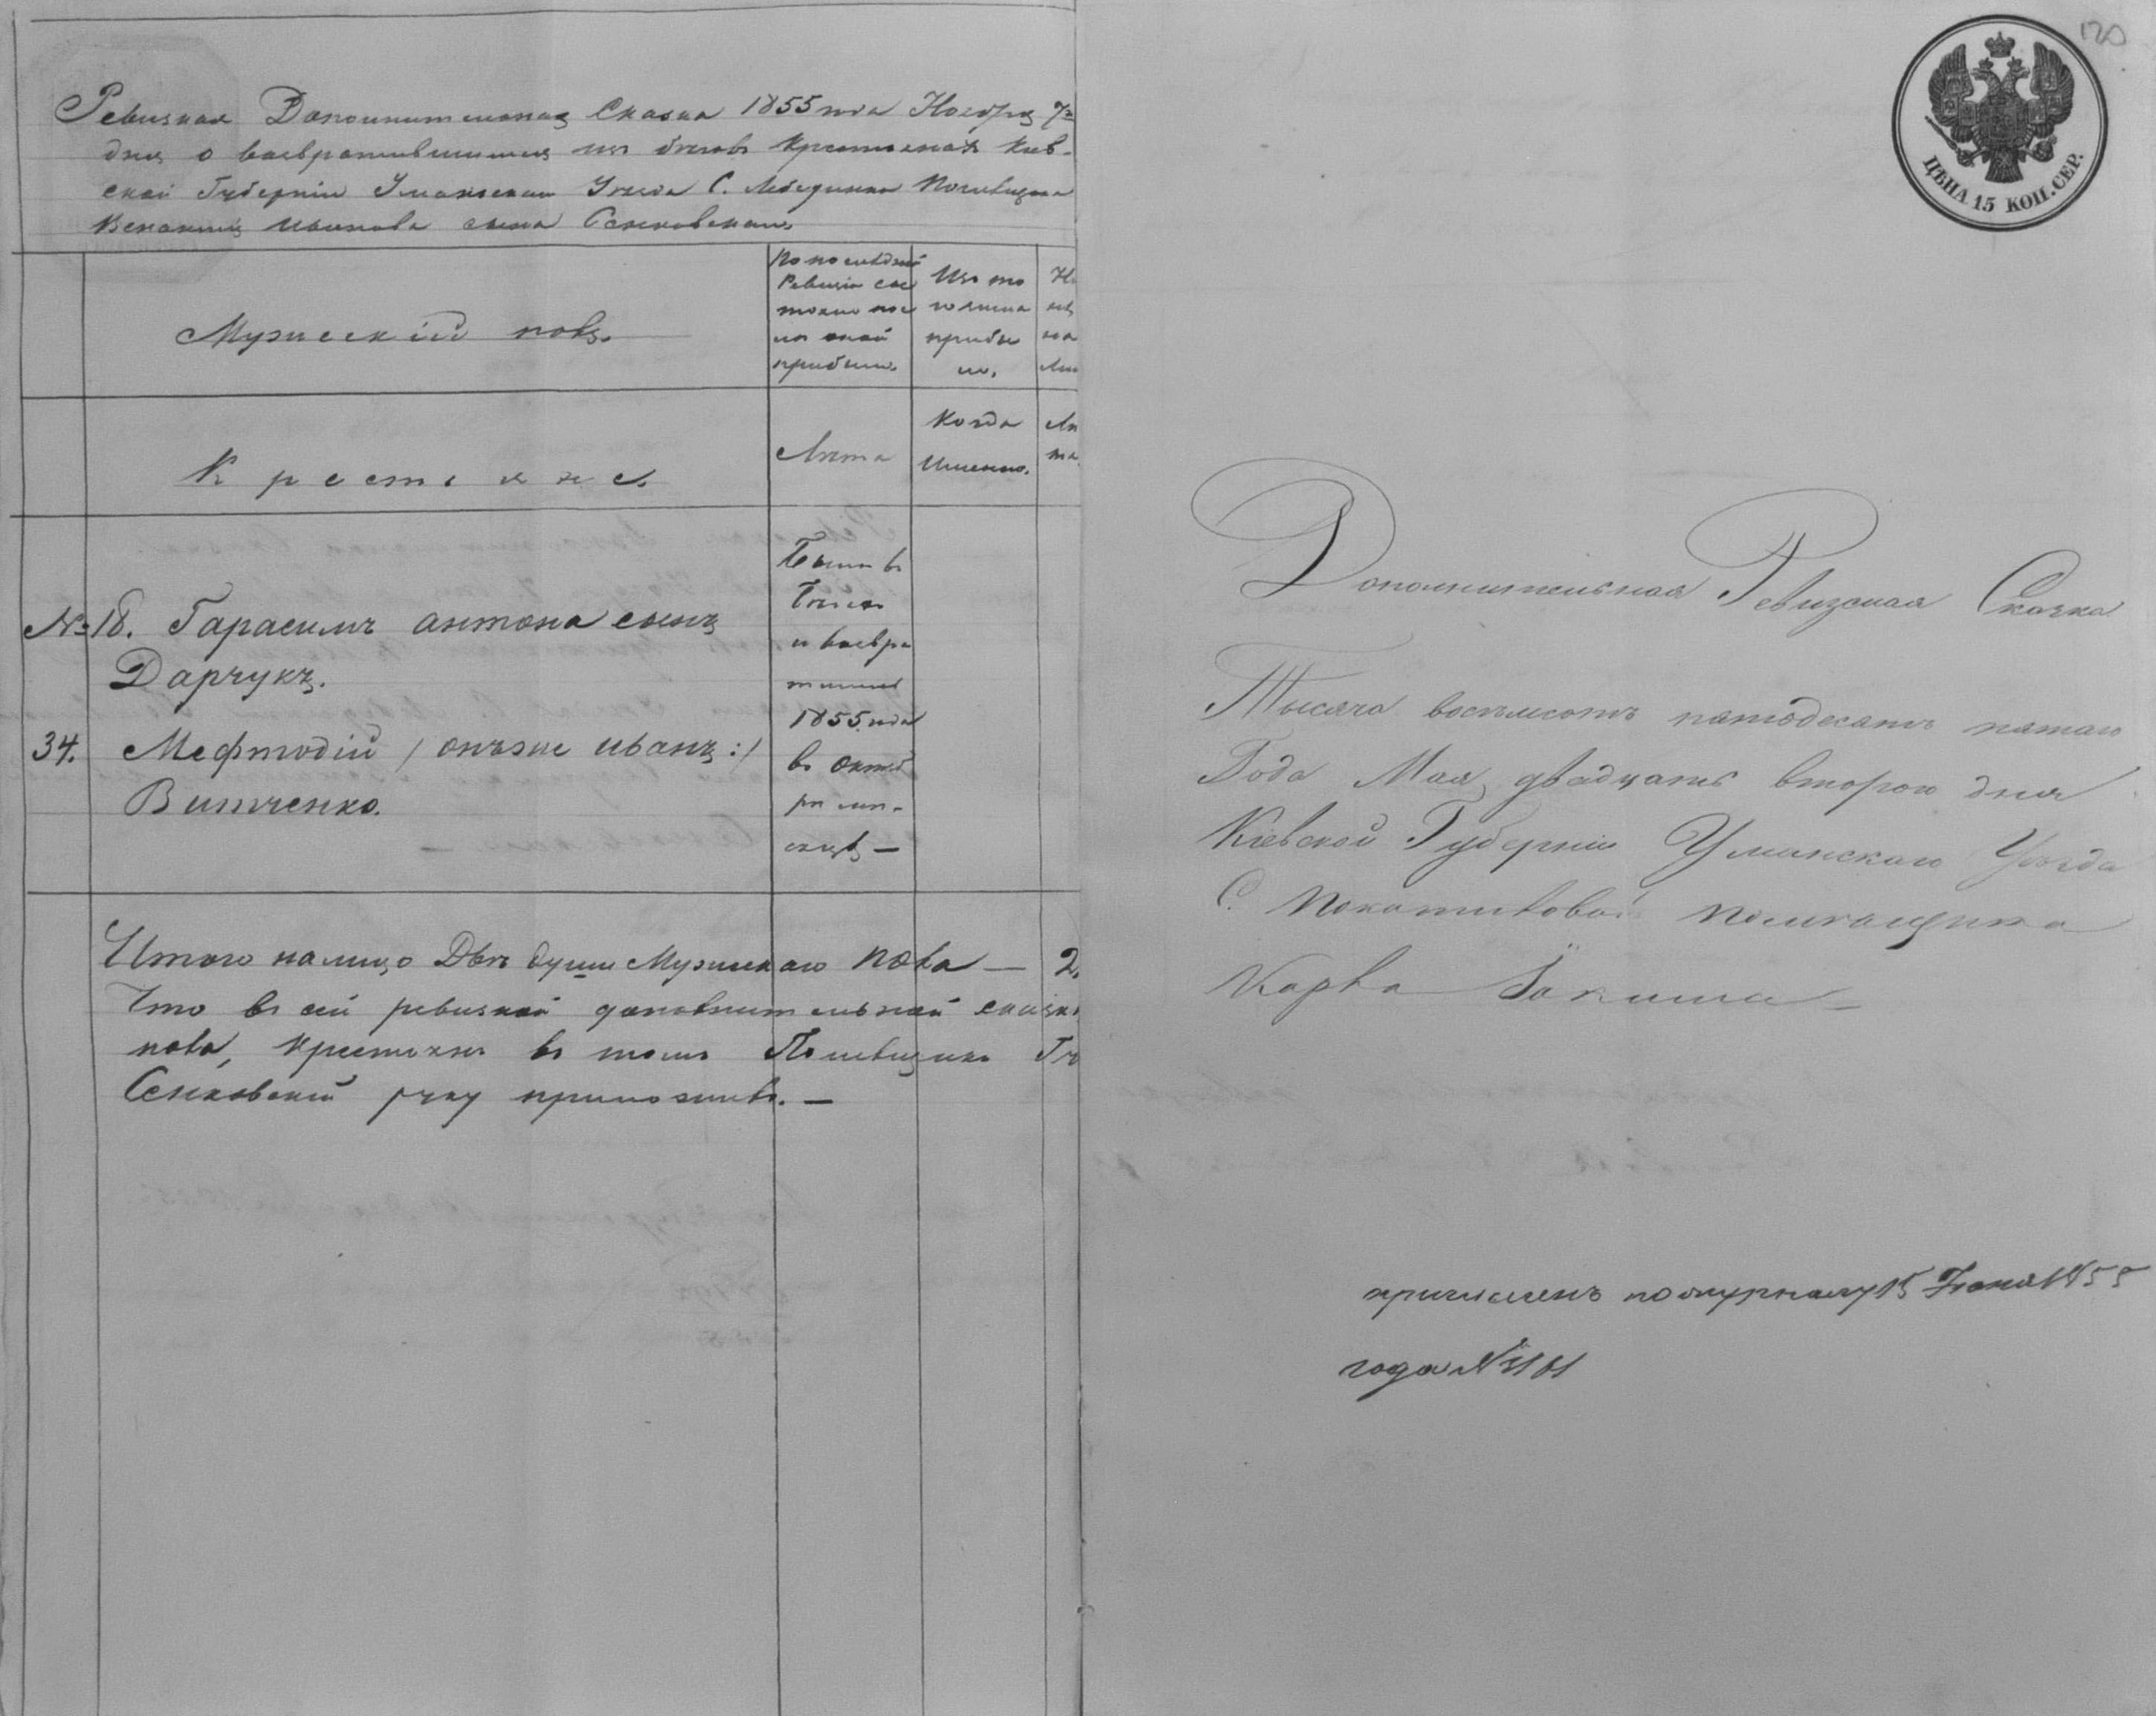 Ревизкая Дополнительная Сказка 1855 года Ноября 7го
дня о возвратившимся изъ бегов крестьянах Киев-
ской Губернiи Уманского Уезда С. Лебединки Помещика
Иванова сына Сенковскаго
Мужескiй полъ.
По последней
Ревизiи сос
тояло и пос
ле оной
прибыло
Изъ то
го числа
прибы
ло.
Крестьяне.
Лета
Когда
Именно.
Ле
та
№ 18. Гарасимъ антона сынъ
Дарчукъ.
34. Мефтодiй /: онъже иванъ :/
Витченко.
Были в
бегах
и возвра
тились
1855 года
в октяб
ре ме-
сяце —
Итого налицо Две души Мужескаго пола — 2.
Что в сей ревизкой дополнительной сказке
пола, крестьян в томъ Помещикъ
Сенковскiй руку приложилъ. —
120
ЦѢНА 15 КОП. СЕР.
Дополнительная Ревизская Сказка
Тысяча восемьсотъ пятодесятъ пятаго
Года Мая двадцать втораго дня
Кiевской Губернiи Уманскаго Уѣзда
С. Покатиловой помѣщика
Карва
причисленъ по журналу 15 Iюня 1855
года №